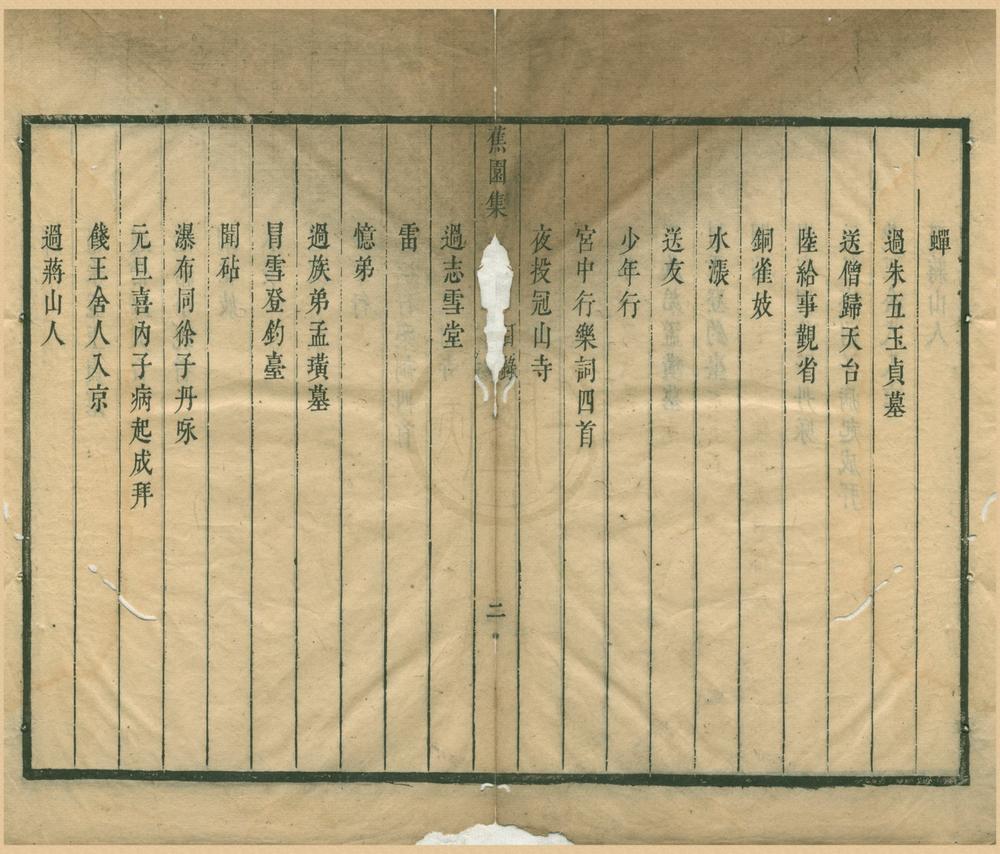 蟬
過朱五玉貞墓
送僧歸天台
陸給事覲省
銅雀妓
水漲
送友
少年行
宮中行樂詞四首
夜投冠山寺
蕉園集
二
過志雪堂
雷
憶弟
過族弟孟璜墓
冒雪登釣臺
聞砧
瀑布同徐子丹咏
元旦喜內子病起成拜
餞王舍人入京
過蔣山人